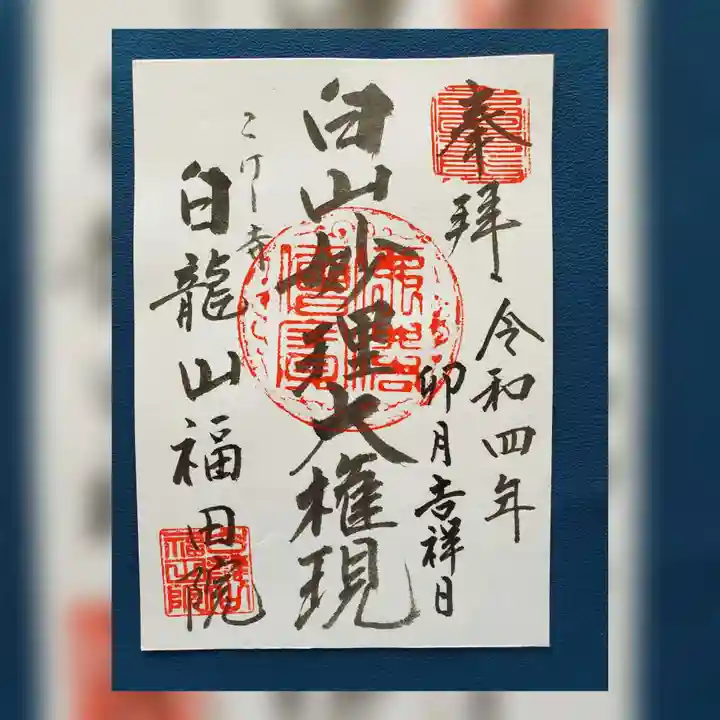 奉拝
令和四年
卯月吉祥日
白山妙理大権現
こけし寺
白龍山福田院